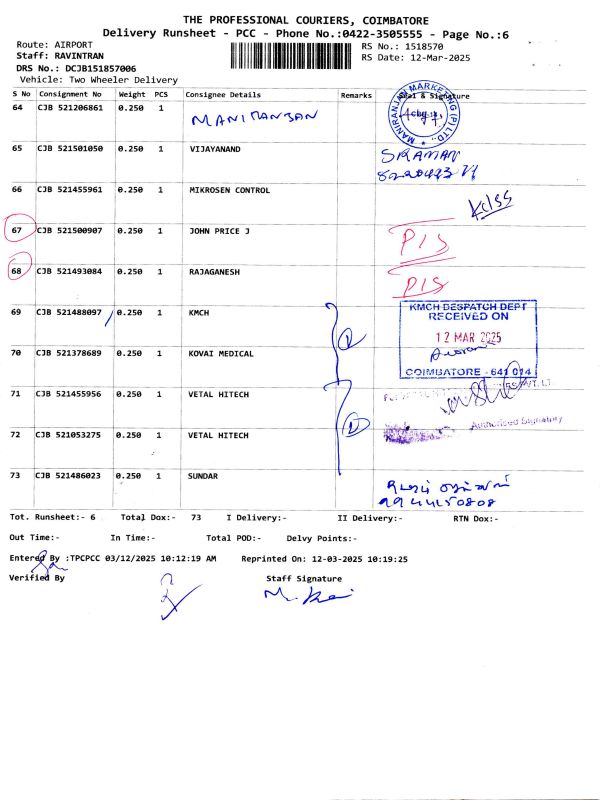 THE PROFESSIONAL COURIERS, COIMBATORE
Delivery Runsheet - PCC - Phone No.:0422-3505555 - Page No.:6
Route: AIRPORT
RS No.: 1518570
Staff: RAVINTRAN
RS Date: 12-Mar-2025
DRS No.: DCJB151857006
Vehicle: Two Wheeler Delivery
S No Consignment No Weight PCS Consignee Details Remarks Seal & Signature
64 CJB 521206861 0.250 1 MANIRANJAN
MANIRANJAN MARKETING (P) LTD.,
65 CJB 521501050 0.250 1 VIJAYANAND
66 CJB 521455961 0.250 1 MIKROSEN CONTROL
67 CJB 521500907 0.250 1 JOHN PRICE J P/S
68 CJB 521493084 0.250 1 RAJAGANESH P/S
69 CJB 521488097 0.250 1 KMCH
KMCH DESPATCH DEPT
RECEIVED ON
12 MAR 2025
COIMBATORE - 641 014
70 CJB 521378689 0.250 1 KOVAI MEDICAL
71 CJB 521455956 0.250 1 VETAL HITECH
72 CJB 521053275 0.250 1 VETAL HITECH
Authorised Signatory
73 CJB 521486023 0.250 1 SUNDAR
9944150808
Tot. Runsheet:- 6 Total Dox:- 73 I Delivery:- II Delivery:- RTN Dox:-
Out Time:- In Time:- Total POD:- Delvy Points:-
Entered By :TPCPCC 03/12/2025 10:12:19 AM Reprinted On: 12-03-2025 10:19:25
Verified By Staff Signature